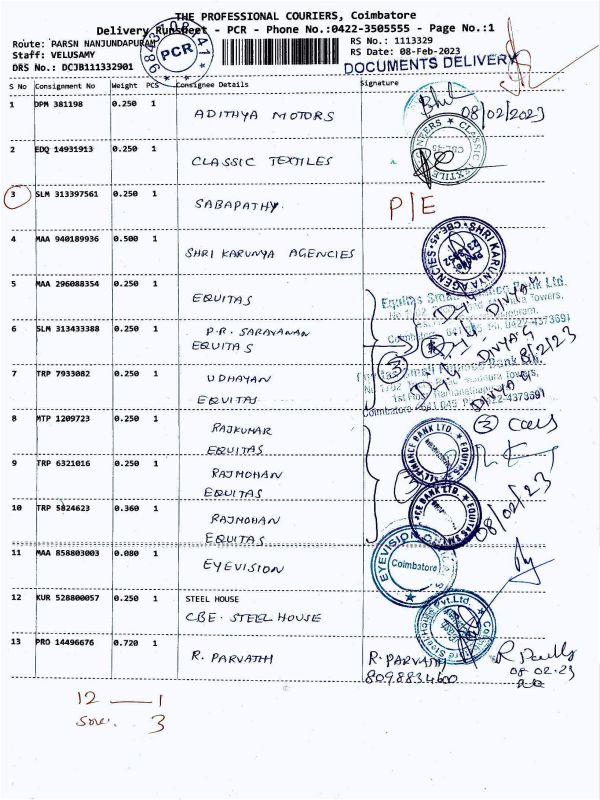 THE PROFESSIONAL COURIERS, Coimbatore
Delivery Runsheet - PCR - Phone No.:0422-3505555 - Page No.:1
Route: PARSN NANJUNDAPURAM
RS No.: 1113329
Staff: VELUSAMY
RS Date: 08-Feb-2023
DRS No.: DCJB111332901
PCR
DOCUMENTS DELIVERY
S No Consignment No Weight PCS Consignee Details Signature
1 DPM 381198 0.250 1 ADITHYA MOTORS 08/02/2023
2 EDQ 14931913 0.250 1 CLASSIC TEXTILES
3 SLM 313397561 0.250 1 SABAPATHY. P/E
4 MAA 940189936 0.500 1 SHRI KARUNYA AGENCIES
SHRI KARUNYA AGENCIES CBE-45
5 MAA 296088354 0.250 1 EQUITAS
6 SLM 313433388 0.250 1 P.R. SARAVANAN
EQUITAS
7 TRP 7933082 0.250 1 UDHAYAN
EQUITAS
3
DIVYA G
8/2/23
8 MTP 1209723 0.250 1 RAJKUMAR
EQUITAS
9 TRP 6321016 0.250 1 RAJMOHAN
EQUITAS
10 TRP 5824623 0.360 1 RAJMOHAN
EQUITAS
08/02/23
11 MAA 858803003 0.080 1 EYEVISION
EYEVISION Coimbatore
12 KUR 528800057 0.250 1 STEEL HOUSE
CBE. STEEL HOUSE
13 PRO 14496676 0.720 1 R. PARVATHI R. PARVATHI
8098834600
08.02.23
12 — 1
3